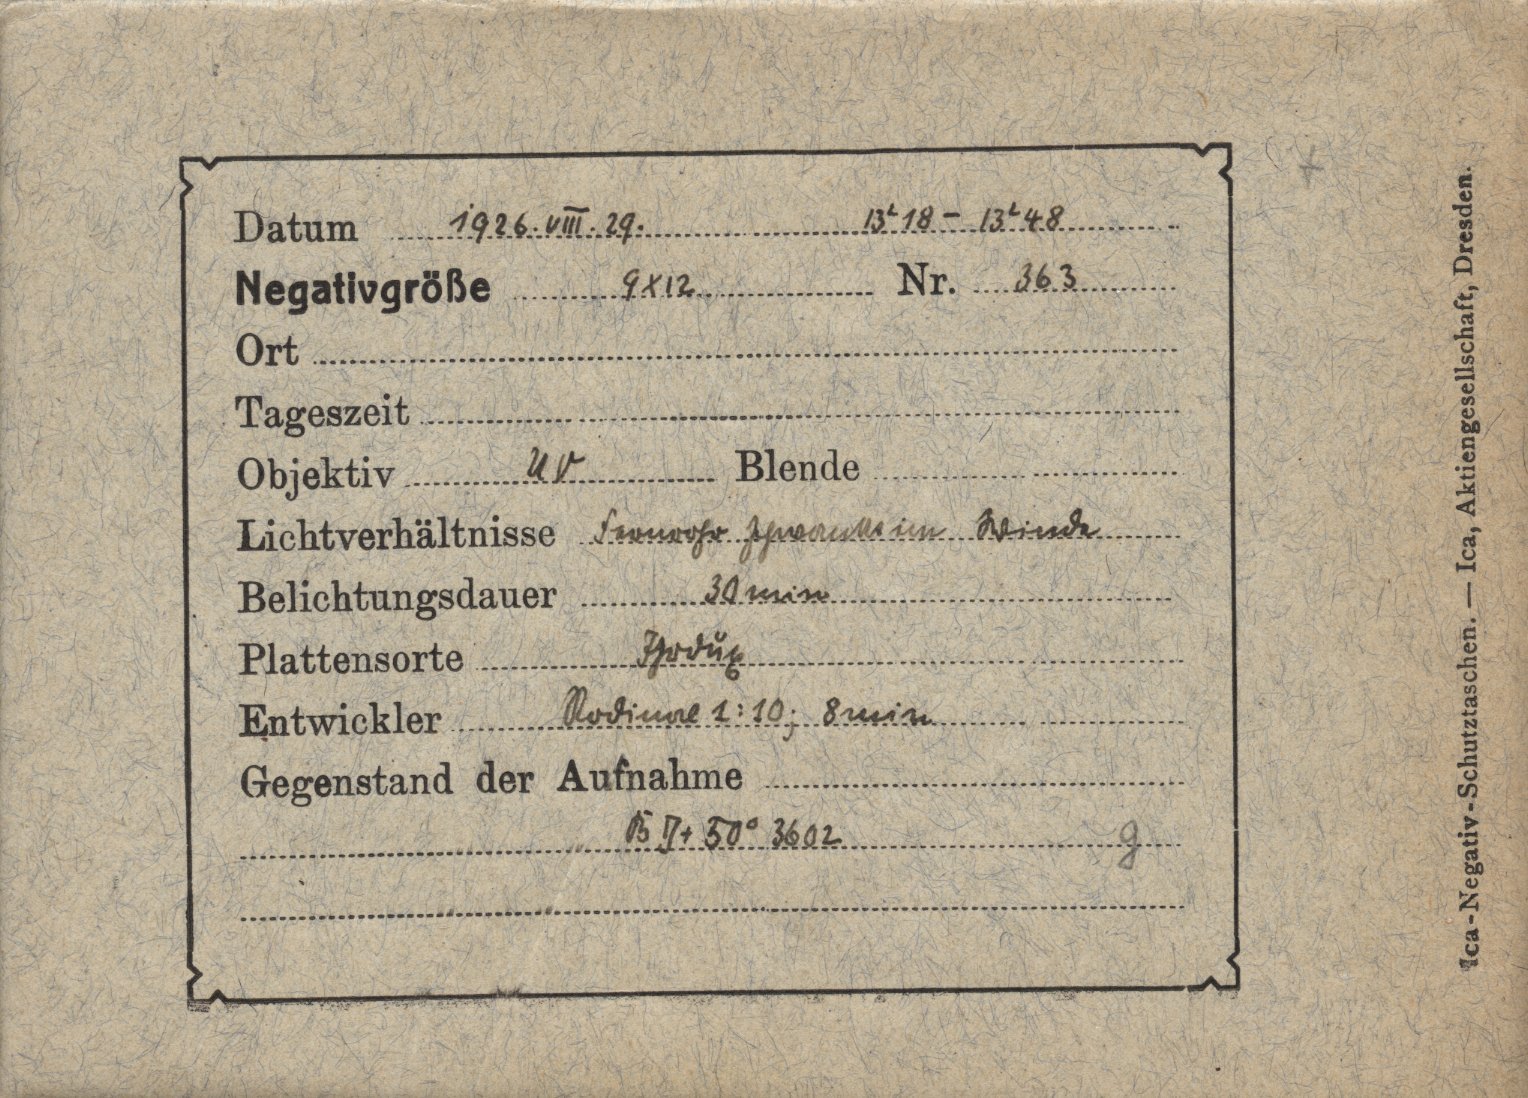 Datum 1926.VIII.29. 13h18 – 13h48
Negativgröße 9x12 Nr. 363
Ort
Tageszeit
Objektiv UV Blende
Lichtverhältnisse Fernrohr schwankt im Winde
Belichtungsdauer 30 min
Plattensorte
Entwickler Rodinal 1:10; 8 min
Gegenstand der Aufnahme
BD + 50° 3602 g
Ica-Negativ-Schutztaschen. — Ica, Aktiengesellschaft, Dresden.